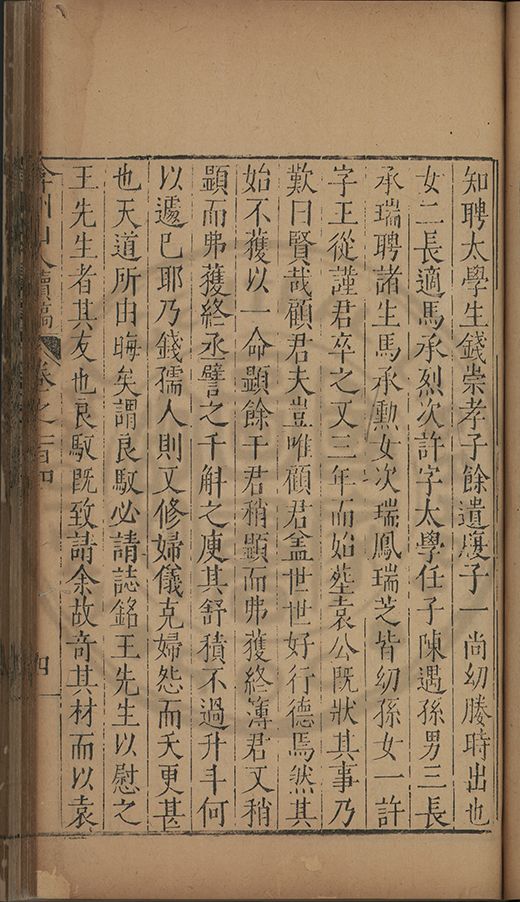 知聘太學生錢崇孝子餘遺廢子一尚幼媵時出也
女二長適馬承烈次許字太學任子陳遇孫男三長
承瑞聘諸生馬承勳女次瑞鳳瑞芝皆幼孫女一許
字王從謹君卒之又三年而始塟袁公旣狀其事乃
歎曰賢哉顧君夫豈唯顧君盖世世好行德焉然其
始不獲以一命顯餘干君稍顯而弗獲終簿君又稍
顯而弗獲終丞譬之千斛之庾其舒積不過升斗何
以遽已耶乃錢孺人則又修婦儀克婦怨而夭更甚
也天道所由晦矣謂良馭必請誌銘王先生以慰之
王先生者其友也良馭旣致請余故奇其材而以袁
弇州山人續稿 卷之一百四 四